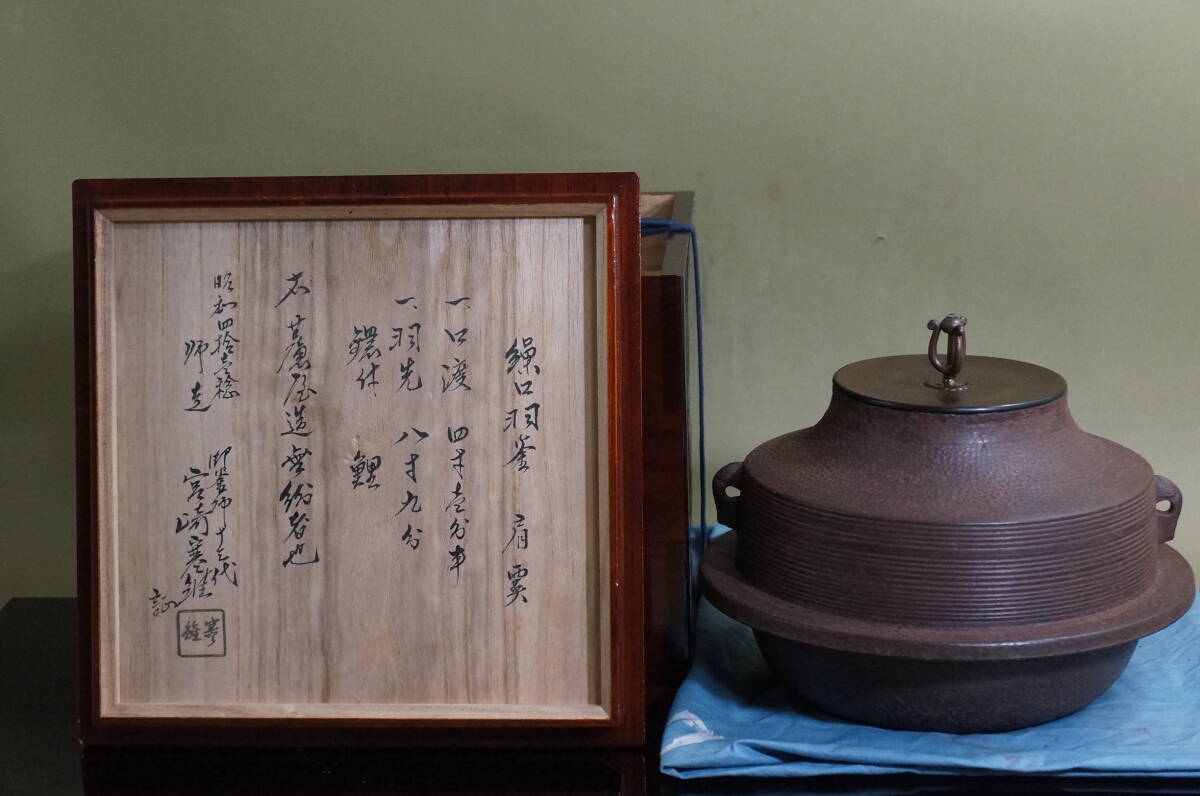 繰口羽釜 肩霰
一、口渡 四寸壱分半
一、羽先 八寸九分
鐶付 鯉
右 芦屋造無紛者也
昭和四拾六稔
師走
御釜師 十三代
宮崎寒雉
証
寒雉